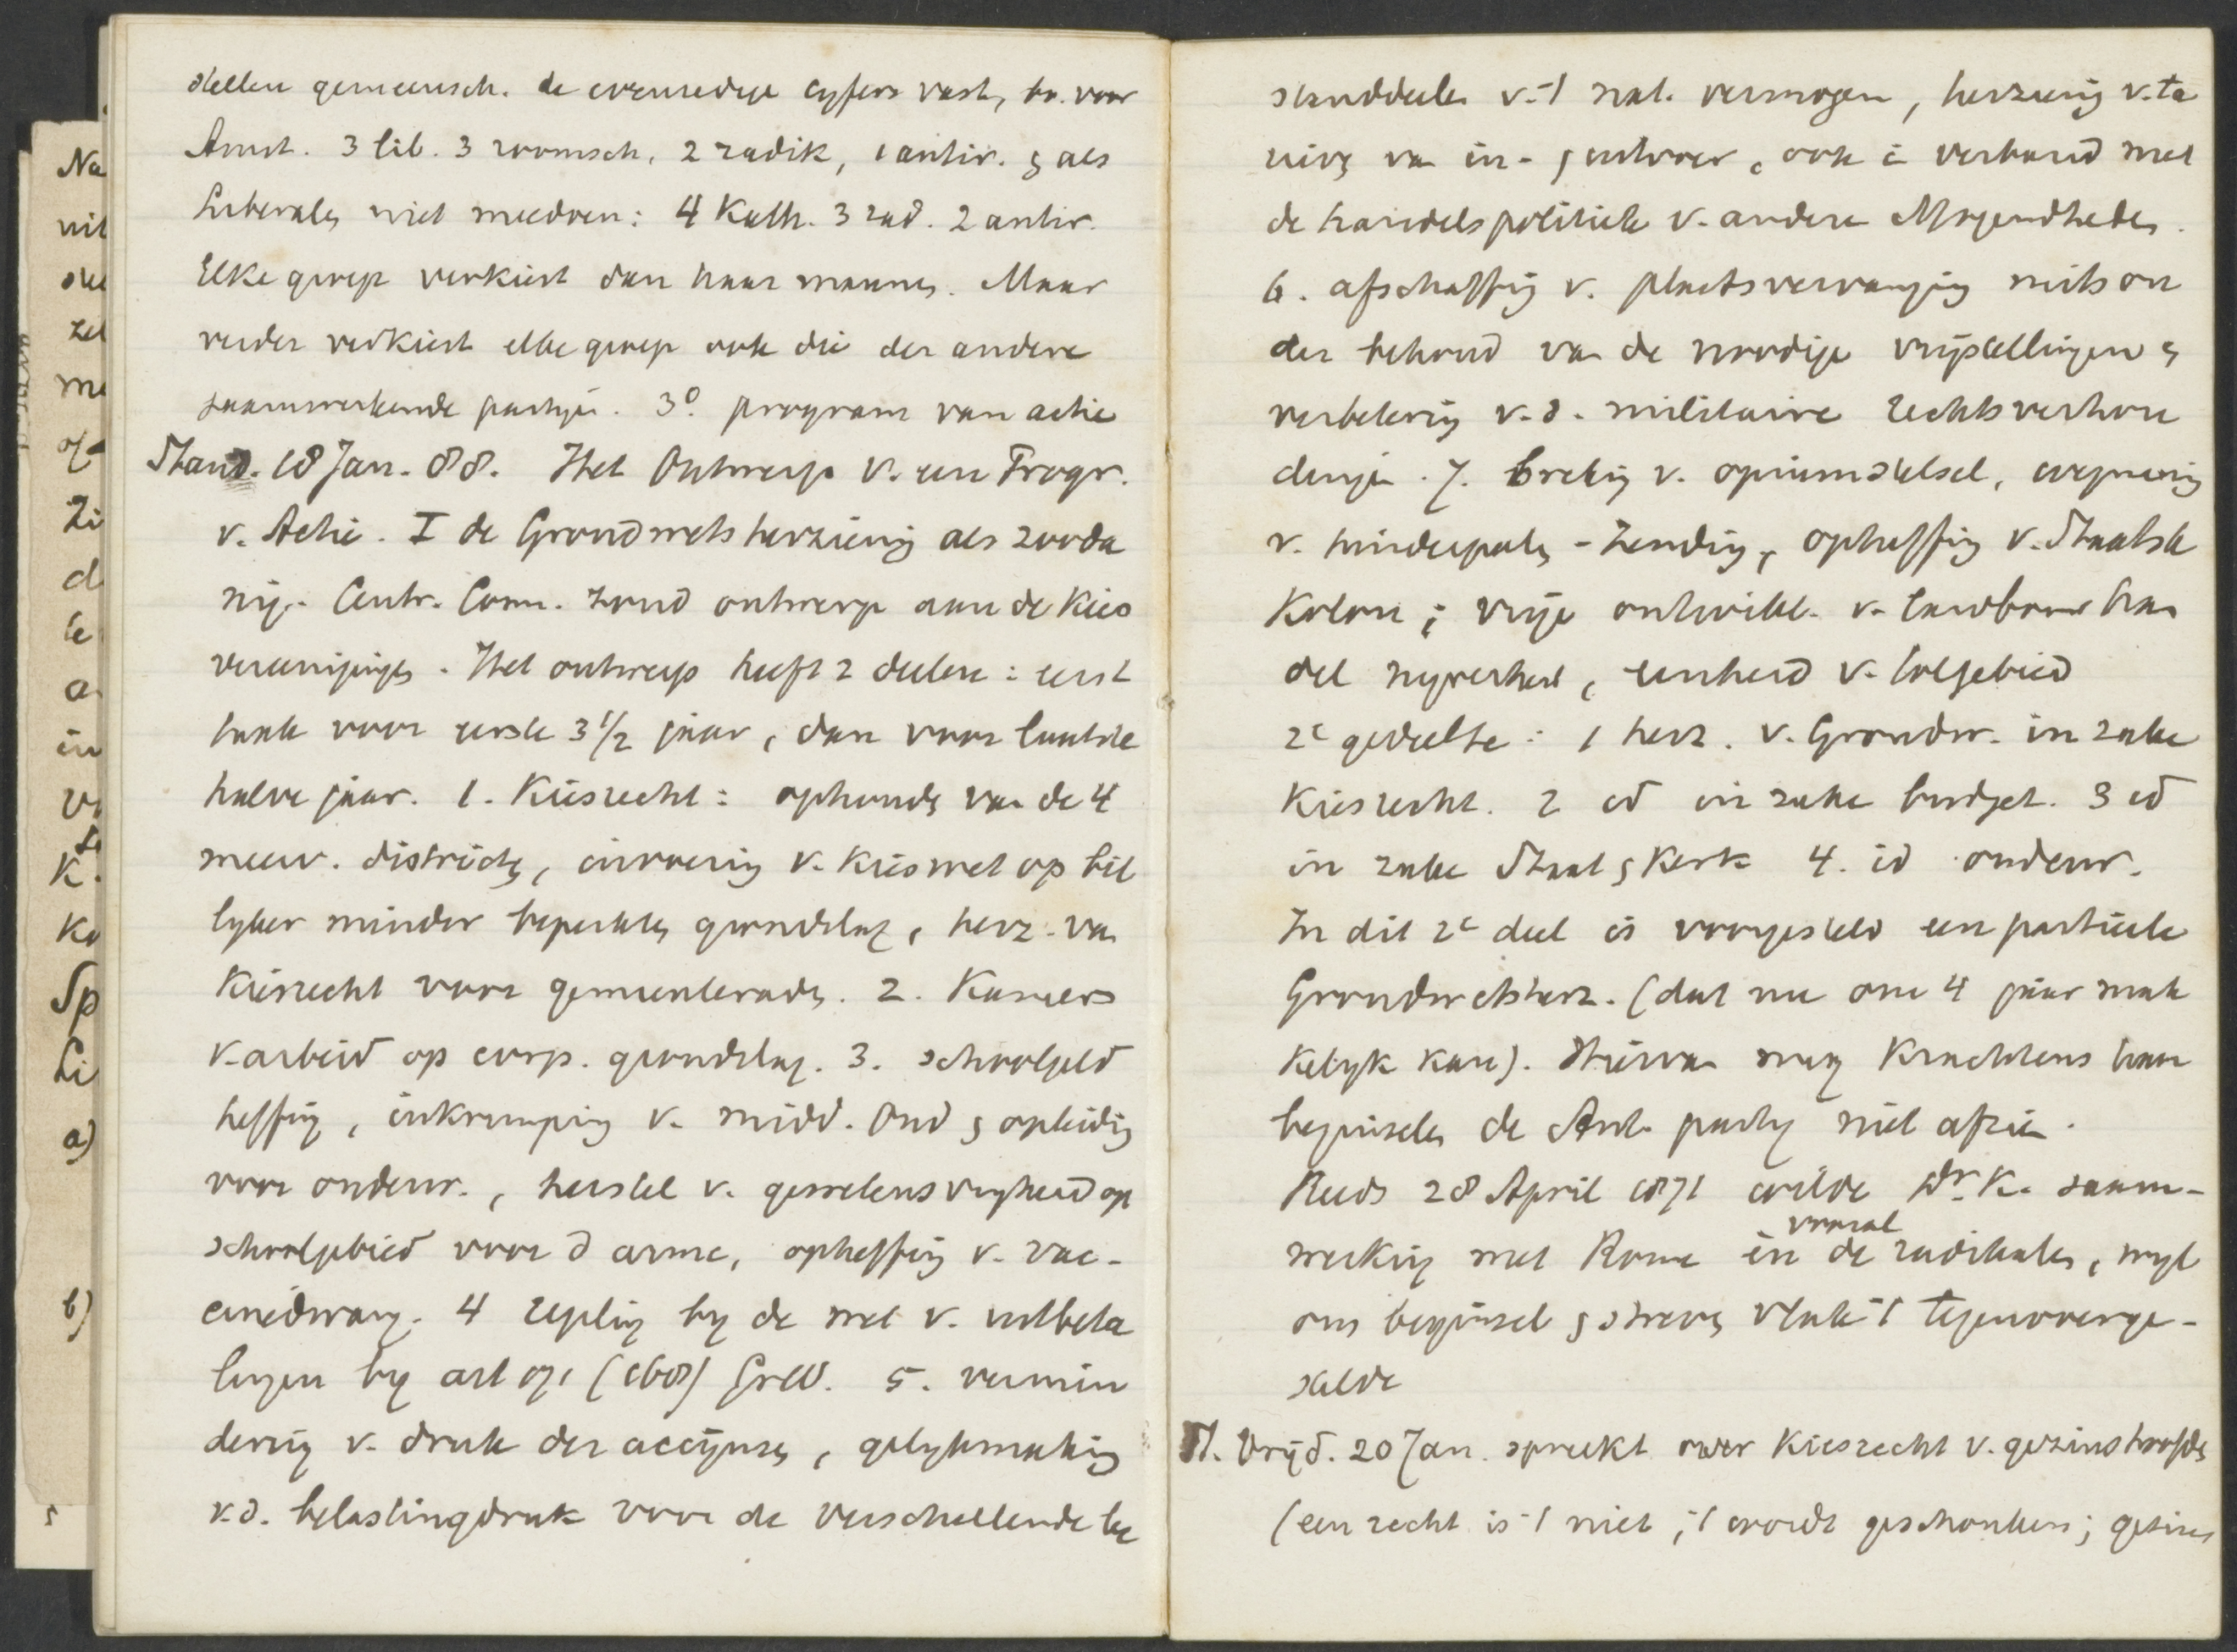 stellen gemeensch. de evenredige cyfers vast, bv. voor
Amst. 3 lib. 3 roomsch, 2 radik, 1 antir. & als
Liberalen niet meedoen: 4 Kath. 3 rad. 2 antir.
Elke groep verkiest dan haar mannen. Maar
verder verkiest elke groep ook die der andere
saamwerkende partyen. 3º. program van actie
Stand. 18 Jan. 88. Het Ontwerp v. een Progr.
v. Actie. I de Grondwetsherziening als zooda
nig. Centr. Com. zond ontwerp aan de Kies
vereenigingen. Het ontwerp heeft 2 deelen: eerst
taak voor eerste 3 1/2 jaar, dan voor laatste
halve jaar. 1. Kiesrecht: ophouden van de 4
meerv. districten, invoering v. Kieswet op bil
lyker minder beperkten grondslag, herz. van
Kiesrecht voor gemeenteraden. 2. Kamers
v. arbeid op corp. grondslag. 3. schoolgeld
heffing, inkrimping v. midd. Ond & opleiding
voor onderw., herstel v. gewetensvryheid op
schoolgebied voor d arme, opheffing v. vac-
cinedwang. 4 regeling by de wet v. uitbeta
lingen by art 171 (168) GrW. 5. vermin
dering v. druk der accijnzen, gelykmaking
v.d. belastingdruk voor de verschillende be
Na
uit
ste
zel
me
Zi
d
le
a
in
K.
Ko
Sp
Li
a)
b)
standdeelen v. 't nat. vermogen, herziening v. ta
rieven van in- & uitvoer, ook in verband met
de handelspolitiek v. andere Mogendheden.
6. afschaffing v. plaatsvervanging mits on
der behoud van de noodige vrijstellingen &
verbetering v.d. militaire rechtsverhou
dingen. 7. breking v. opiumstelsel, wegneming
v. hinderpalen - Zending, opheffing v. Staatsk
Kolon; vrije ontwikk. v. landbouw han
del nyverheid, eenheid v. tolgebied
2e gedeelte: 1 herz. v. Grondw. in zake
Kiesrecht. 2 id in zake budget. 3 id
in zake Staat & Kerk 4. id onderw.
In dit 2e deel is voorgesteld een partieele
Grondwetsherz. (dat nu om 4 jaar mak
kelyk kan). Hiervan mag krachtens haar
beginselen de Ant. party niet afzien.
Reeds 28 April 1871 wilde Dr. K. saam-
werking met Rome en vooral de radikalen, wyl
ons beginsel & streven vlak 't tegenoverge-
stelde
St. Vrijd. 20 Jan. spreekt over Kiesrecht v. gezinshoofden
(een recht is 't niet, 't wordt geschonken; gezins